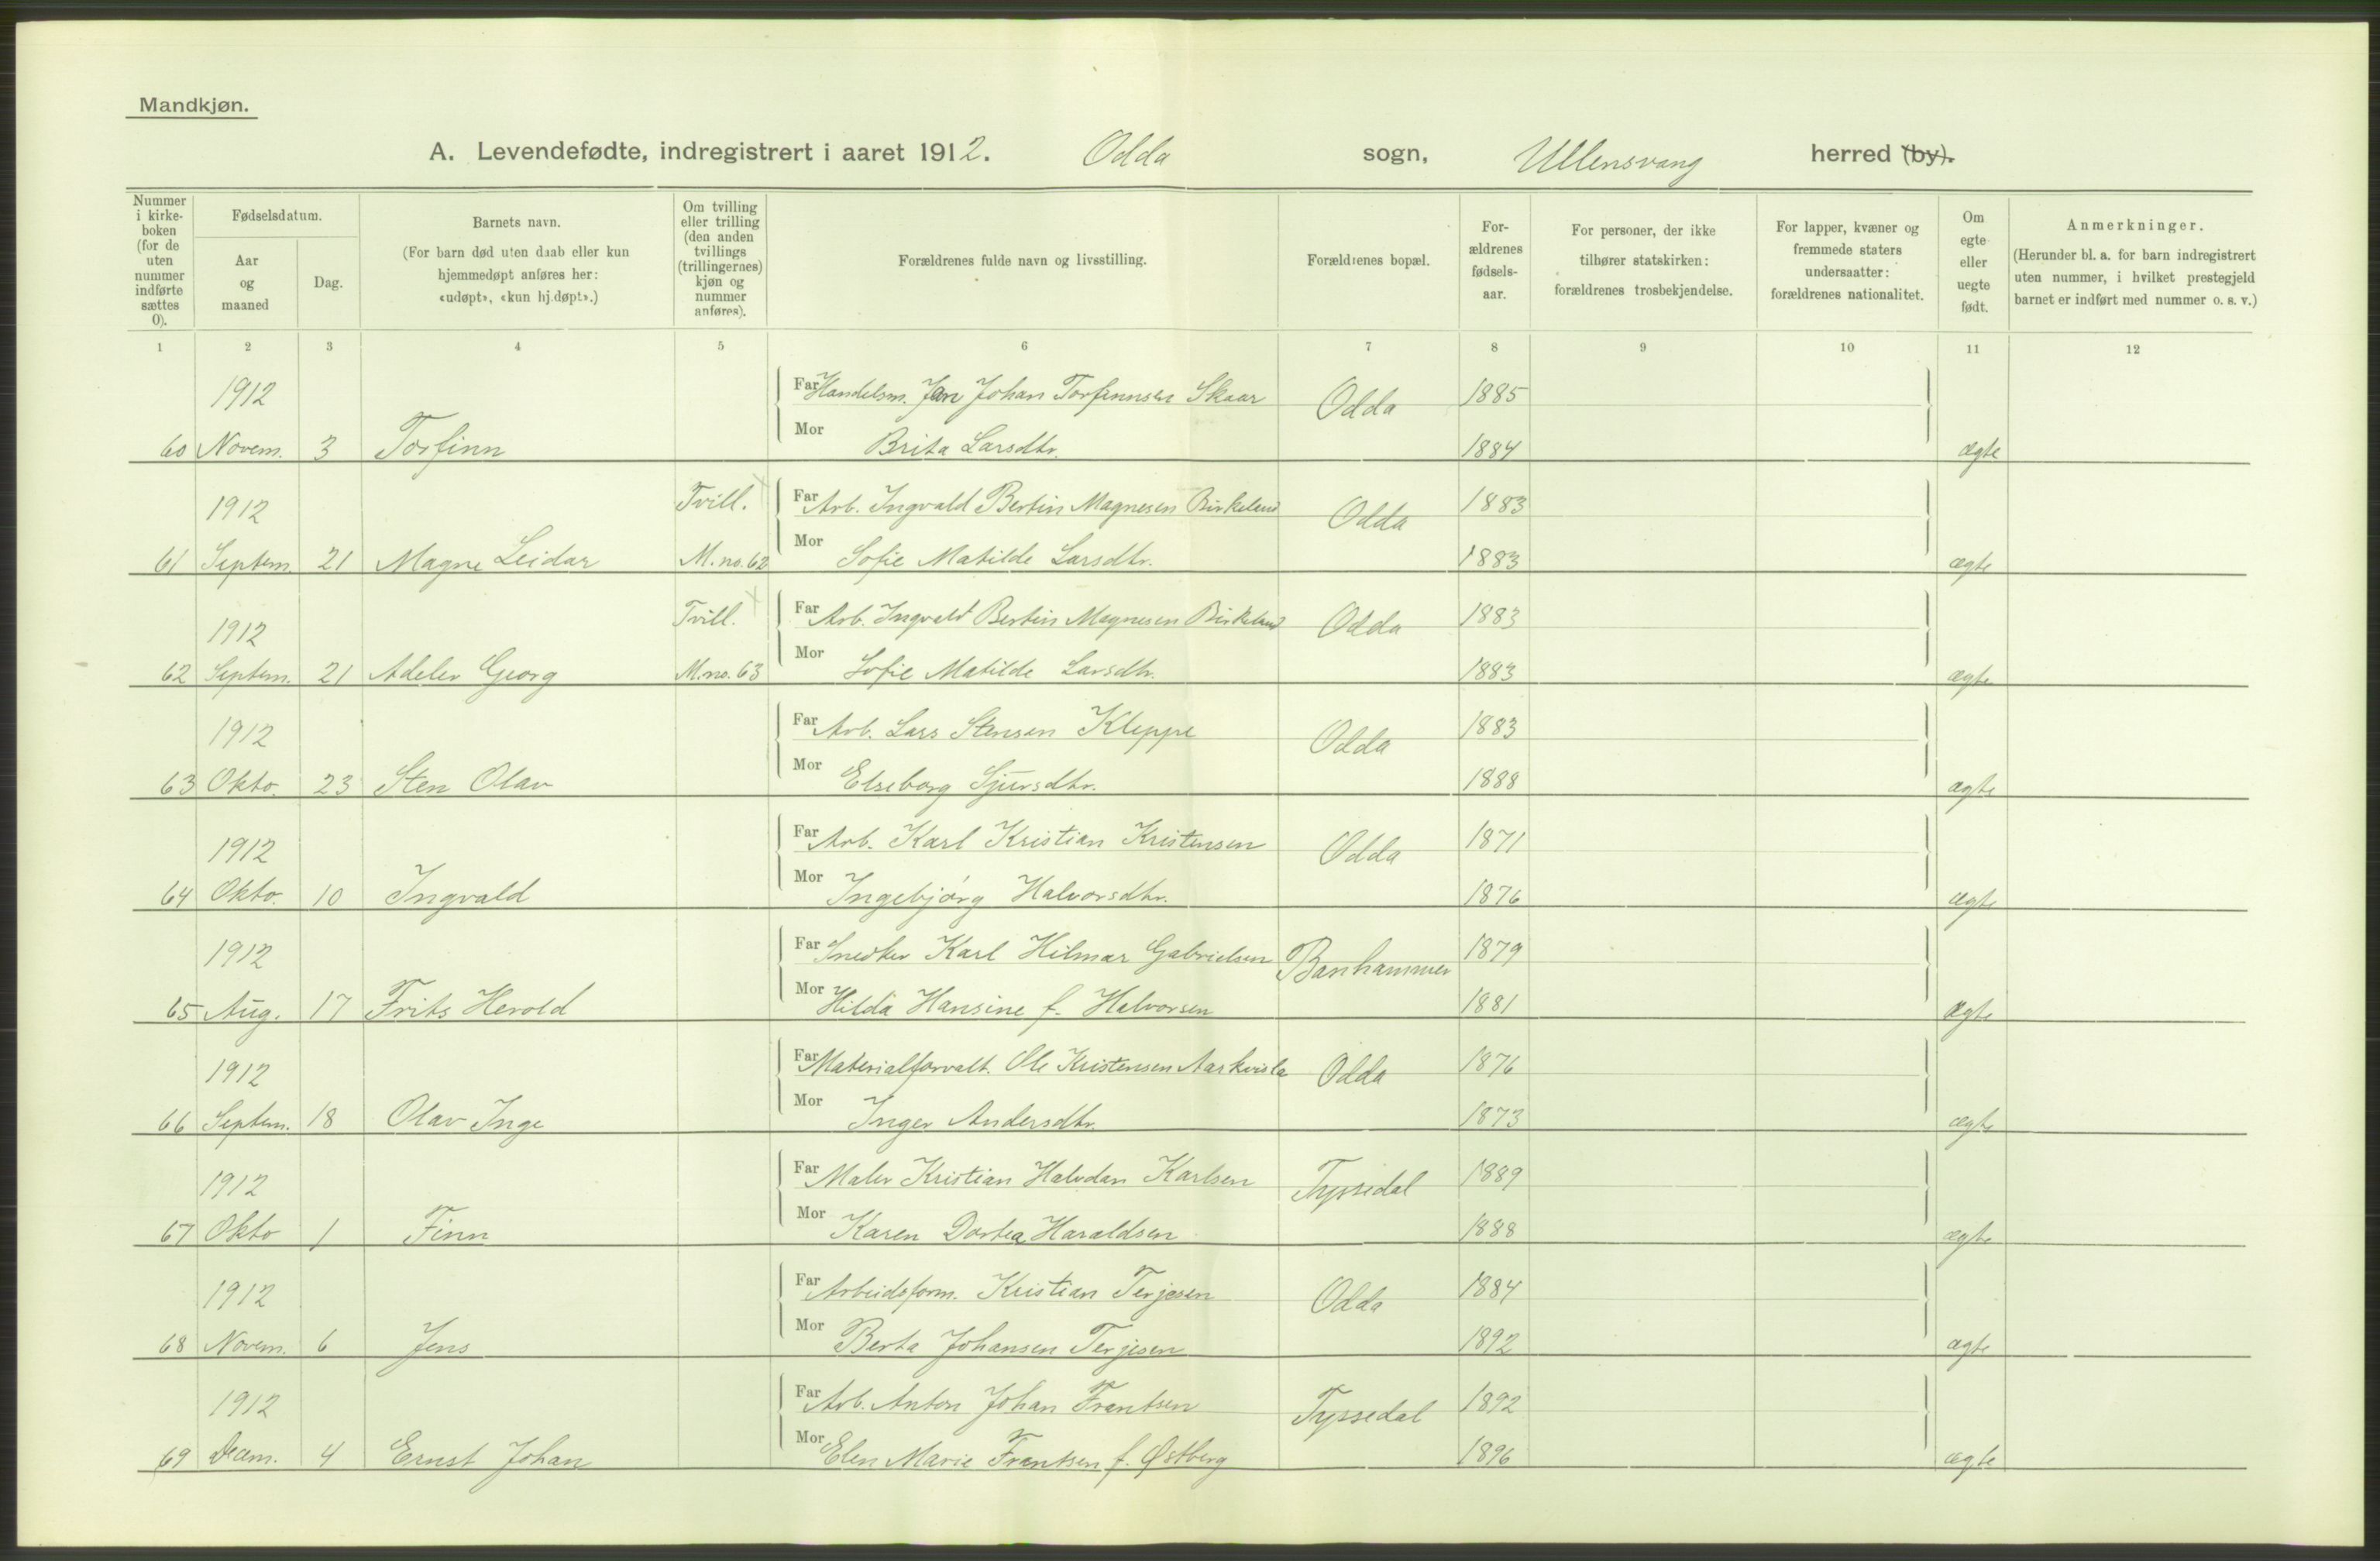 Mandkjøn.
A. Levendefødte, indregistrert i aaret 1912. Odda sogn, Ullensvang herred (by).
Nummer i kirke-boken (for de uten nummer indførte sættes 0).
Fødselsdatum.
Aar og maaned
Dag.
Barnets navn.
(For barn død uten daab eller kun hjemmedøpt anføres her: «udøpt», «kun hj.døpt».)
Om tvilling eller trilling (den anden tvillings (trillingernes) kjøn og nummer anføres).
Forældrenes fulde navn og livsstilling.
Forældrenes bopæl.
For-ældrenes fødsels-aar.
For personer, der ikke tilhører statskirken: forældrenes trosbekjendelse.
For lapper, kvæner og fremmede staters undersaatter: forældrenes nationalitet.
Om egte eller uegte født.
Anmerkninger.
(Herunder bl. a. for barn indregistrert uten nummer, i hvilket prestegjeld barnet er indført med nummer o. s. v.)
1 2 3 4 5 6 7 8 9 10 11 12
1912 Far Handelsm. Jan Johan Torfinnsen Skaar Odda 1885
60 Novem. 3 Torfinn Mor Brita Larsdtr. 1884 ægte
1912 Tvill. Far Arb. Ingvald Bertin Magnesen Birkeland Odda 1883
61 Septem. 21 Magne Leidar M. no. 62 Mor Sofie Matilde Larsdtr. 1883 ægte
1912 Tvill. Far Arb. Ingvald Bertin Magnesen Birkeland Odda 1883
62 Septem. 21 Adeler Georg M. no. 63 Mor Sofie Matilde Larsdtr. 1883 ægte
1912 Far Arb. Lars Stensen Kleppe Odda 1883
63 Okto. 23 Sten Olav Mor Elseborg Sjursdtr. 1888 ægte
1912 Far Arb. Karl Kristian Kristensen Odda 1871
64 Okto. 10 Ingvald Mor Ingebjørg Halvorsdtr. 1876 ægte
1912 Far Snedker Karl Hilmar Gabrielsen Banhammer 1879
65 Aug. 17 Frits Herold Mor Hilda Hansine f. Halvorsen 1881 ægte
1912 Far Materialforvalt. Ole Kristensen Aarkvisla Odda 1876
66 Septem. 18 Olav Inge Mor Inger Andersdtr. 1873 ægte
1912 Far Maler Kristian Halvdan Karlsen Tyssedal 1889
67 Okto 1 Finn Mor Karen Dortea Haraldsen 1888 ægte
1912 Far Arbeidsform. Kristian Terjesen Odda 1884
68 Novem. 6 Jens Mor Berta Johansen Terjesen 1892 ægte
1912 Far Arb. Anton Johan Frantsen Tyssedal 1892
69 Decem. 4 Ernst Johan Mor Elen Marie Frantsen f. Østberg 1896 ægte